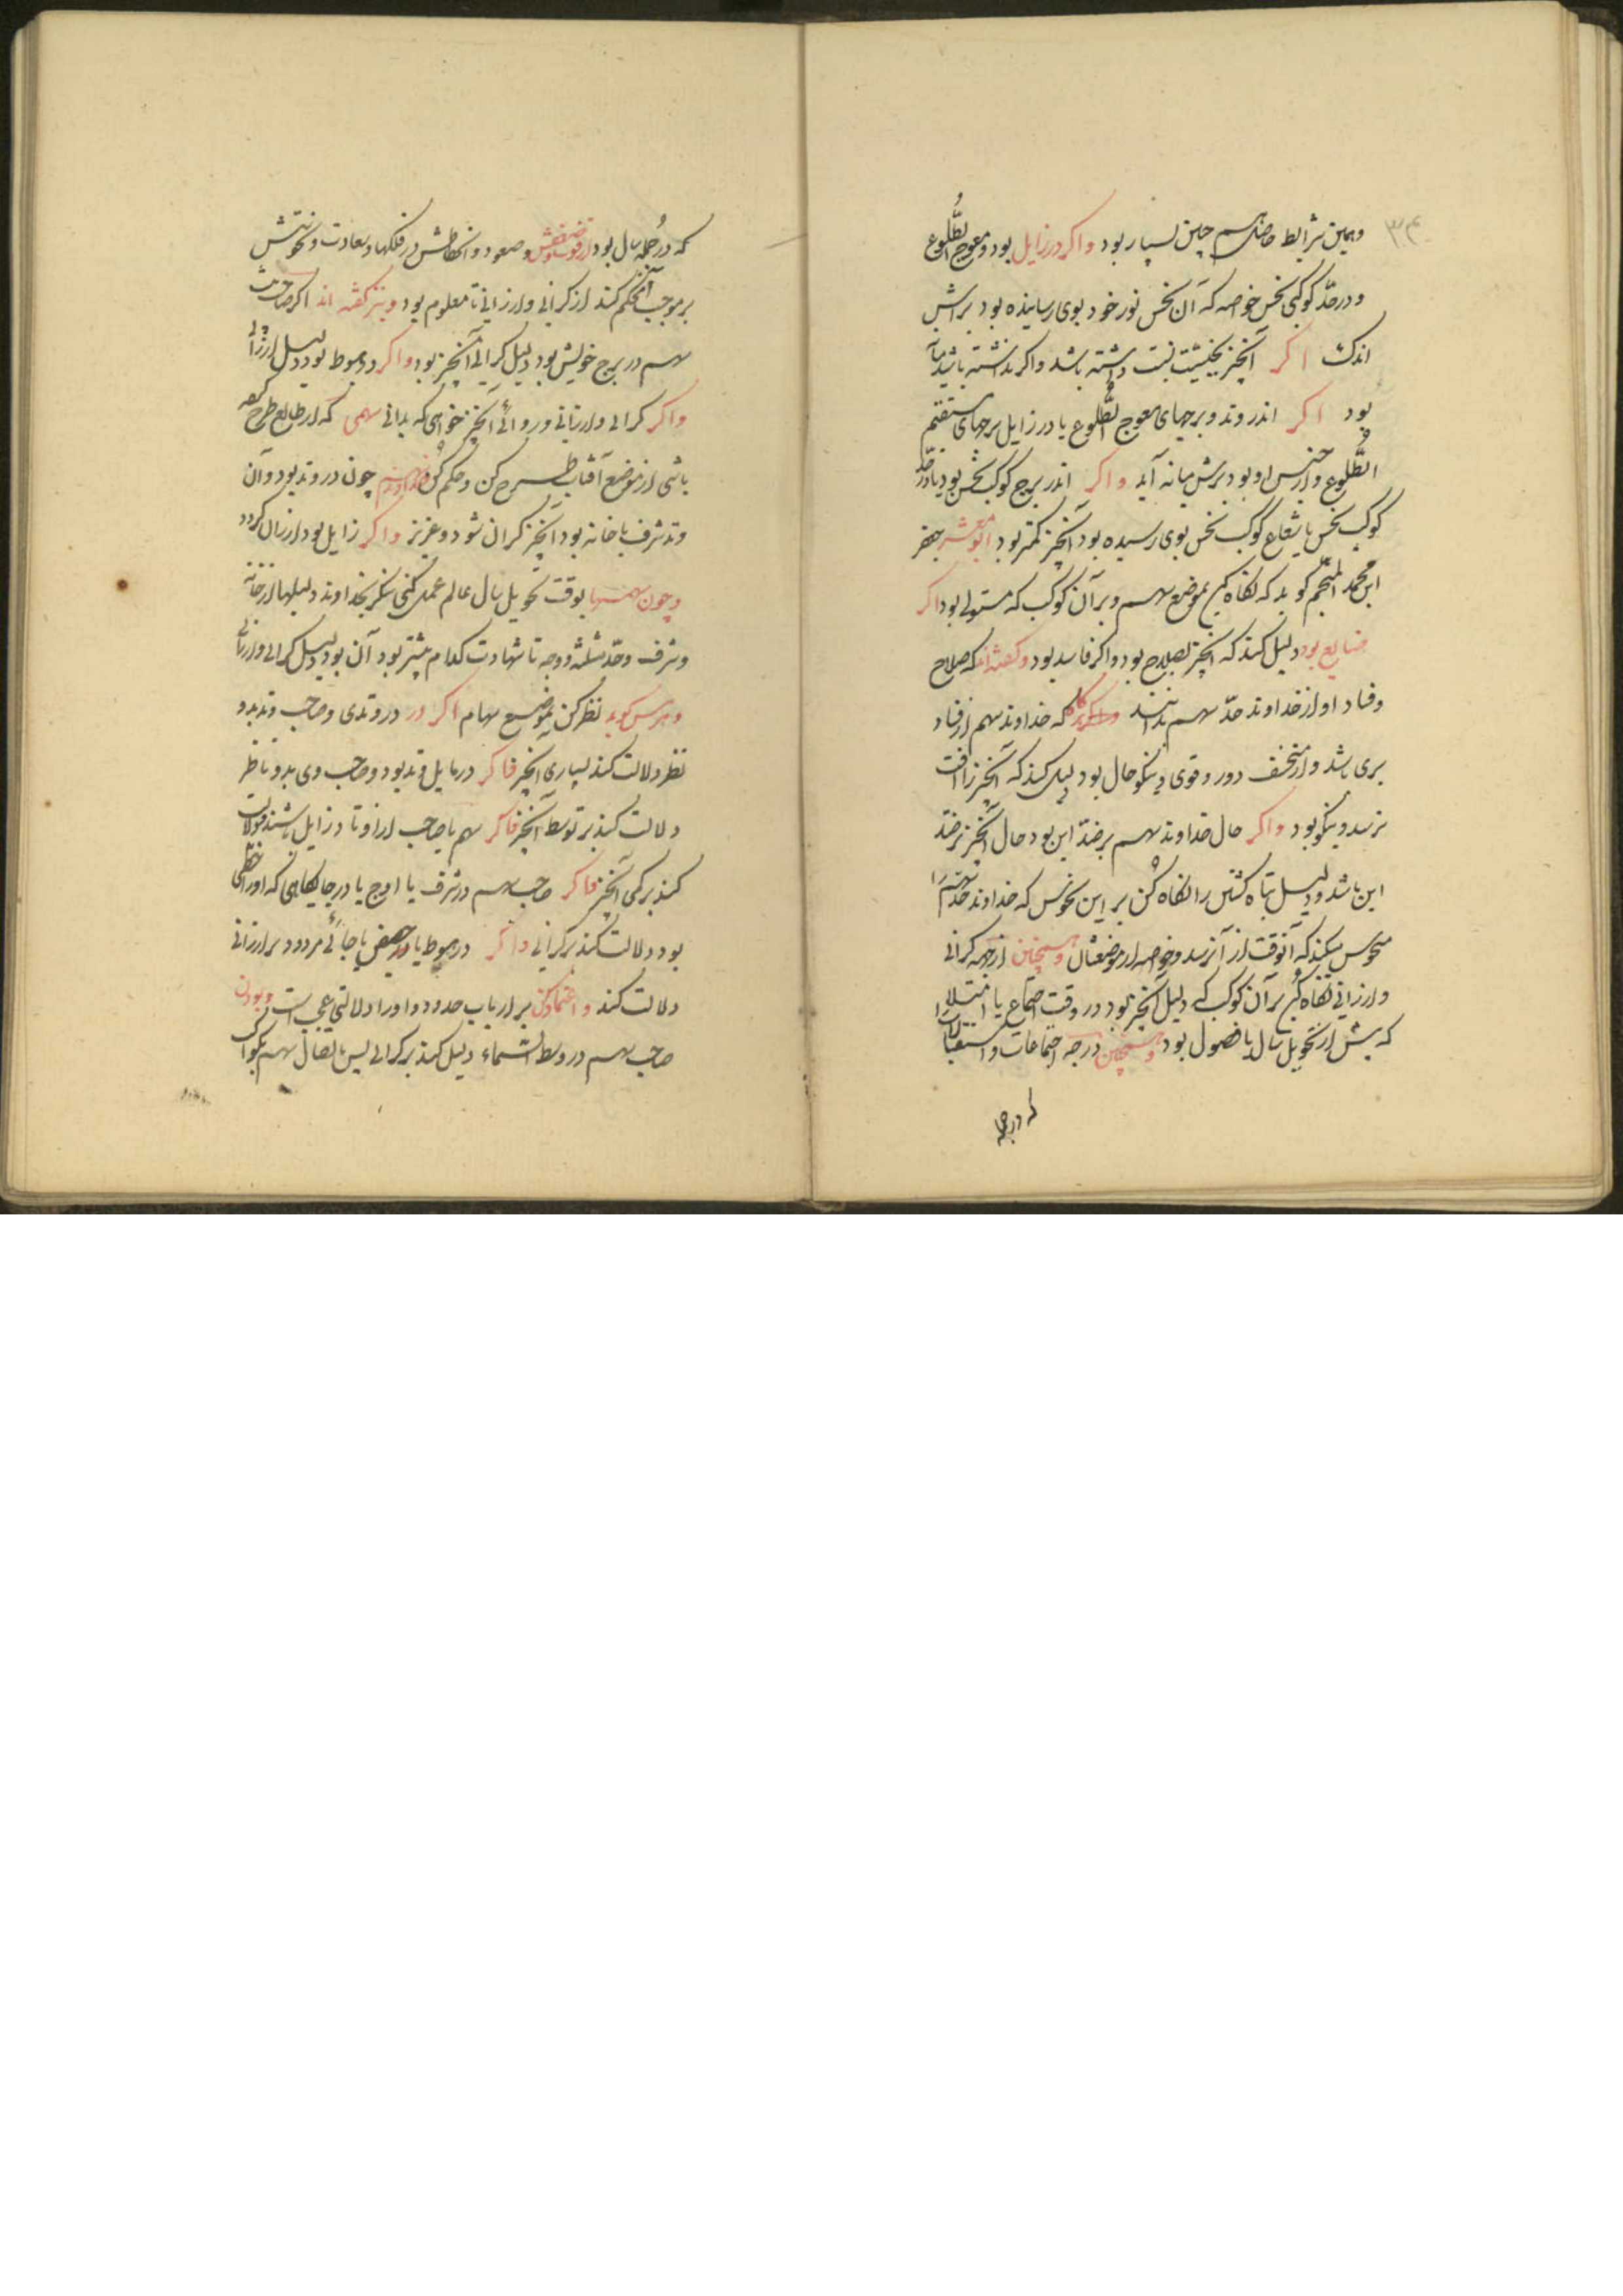 ۳۴
وهمین شرایط خاصه سهم چنین بسیار بود واکر در زایل بود ومعوج الطلوع
ودر حدّ کوکبی نحس خوصه که آن نحس نور خود بوی رسانیده بود براش
اندک اکر آنچیز بخیشیت نبت داشته باشد واکر نداشته باشد
بود اکر اندر وتد وبرجهای معوج الطلوع یا در زایل برجهای مستقیم
الطّلوع واز جنس او بود برش میانه آید واکر اندر برج کوکب نحس بود یا در حدّ
کوکب نحس یا شعاع کوکب نحس بوی رسیده بود آنچیز کمتر بود ابومعشر جعفر
ابن محمد المنجم کوید که نکاه کن بموضع سهم وبر آن کوکب که مستولی بود اکر
صالح بود دلیل کند که آنچیز بصلاح بود واکر فاسد بود وکفته‌اند که صلاح
وفساد او از خداوند حدّ سهم بدانند که خداوند سهم از فساد
بری باشد واز منحسف دور وقوی ونیکو حال بود دلیل کند که آنچیز را آفت
نرسد ونیکو بود واکر حال خداوند سهم بر ضدّ این بود حال آنچیز بر ضدّ
این باشد ودلیل تباه کشتن را نکاه کن بر این نحوس که خداوند حدّ سهم را
منحوس میکند که آنوقت از آن رسد وخوصه از موضعشان وهمچنین از جهة کرانی
وارزانی نکاه کن بر آن کوکب که دلیل آنچیز بود در وقت اجتماع یا امتلا
که پیش از تحویل سال یا فصول بود وهمچنین درجه اجتماعات واستقبالات
که در جمله سال بود از قوت وضعفش وصعود وانحطاطش در فلکها وسعادت ونحوستش
بر موجب آن حکم کند از کرانی وارزانی تا معلوم بود ونیز کفته اند اکر صاحب
سهم در برج خویش بود دلیل کرانی آنچیز بود واکر در هبوط بود دلیل ارزانی
واکر کرانی وارزانی وروائی آنچیز خواهی که بدانی سهمی که از طالع طرح کرده
باشی از موضع آفتاب طرح کن وحکم کن خداوند سهم چون در وتد بود وآن
وتد شرف یا خانه بود آنچیز کران شود وعزیز واکر زایل بود ارزان کردد
وچون سهمها بوقت تحویل سال عالم عمل کنی بنکر بخداوند دلیلها از خانه
وشرف وحدّ ومثلثه ووجه تا شهادت کدام بیشتر بود آن بود دلیل کرانی وارزانی
وهرمس کوید نظر کن بموضع سهام اکر در در وتدی وصاحب وتد بدو
نظر دلالت کند بسیاری آنچیز فاکر در مایل وتد بود وصاحب وی بدو ناظر
دلالت کند بر توسط آنچیز فاکر سهم یا صاحب از اوتاد زایل باشند دلالت
کند بر کمی آنچیز فاکر صاحب سهم در شرف یا اوج یا در جایکاهی که او را حظّی
بود دلالت کند بر کرانی واکر در هبوط یا در حضیض یا جائی مردود بر ارزانی
دلالت کند واعتماد کن بر ارباب حدود واو را دلالتی عجب است وبودن
صاحب سهم در وسط السّماء دلیل کند بر کرانی پس باتصال سهم بکواکب
درجه